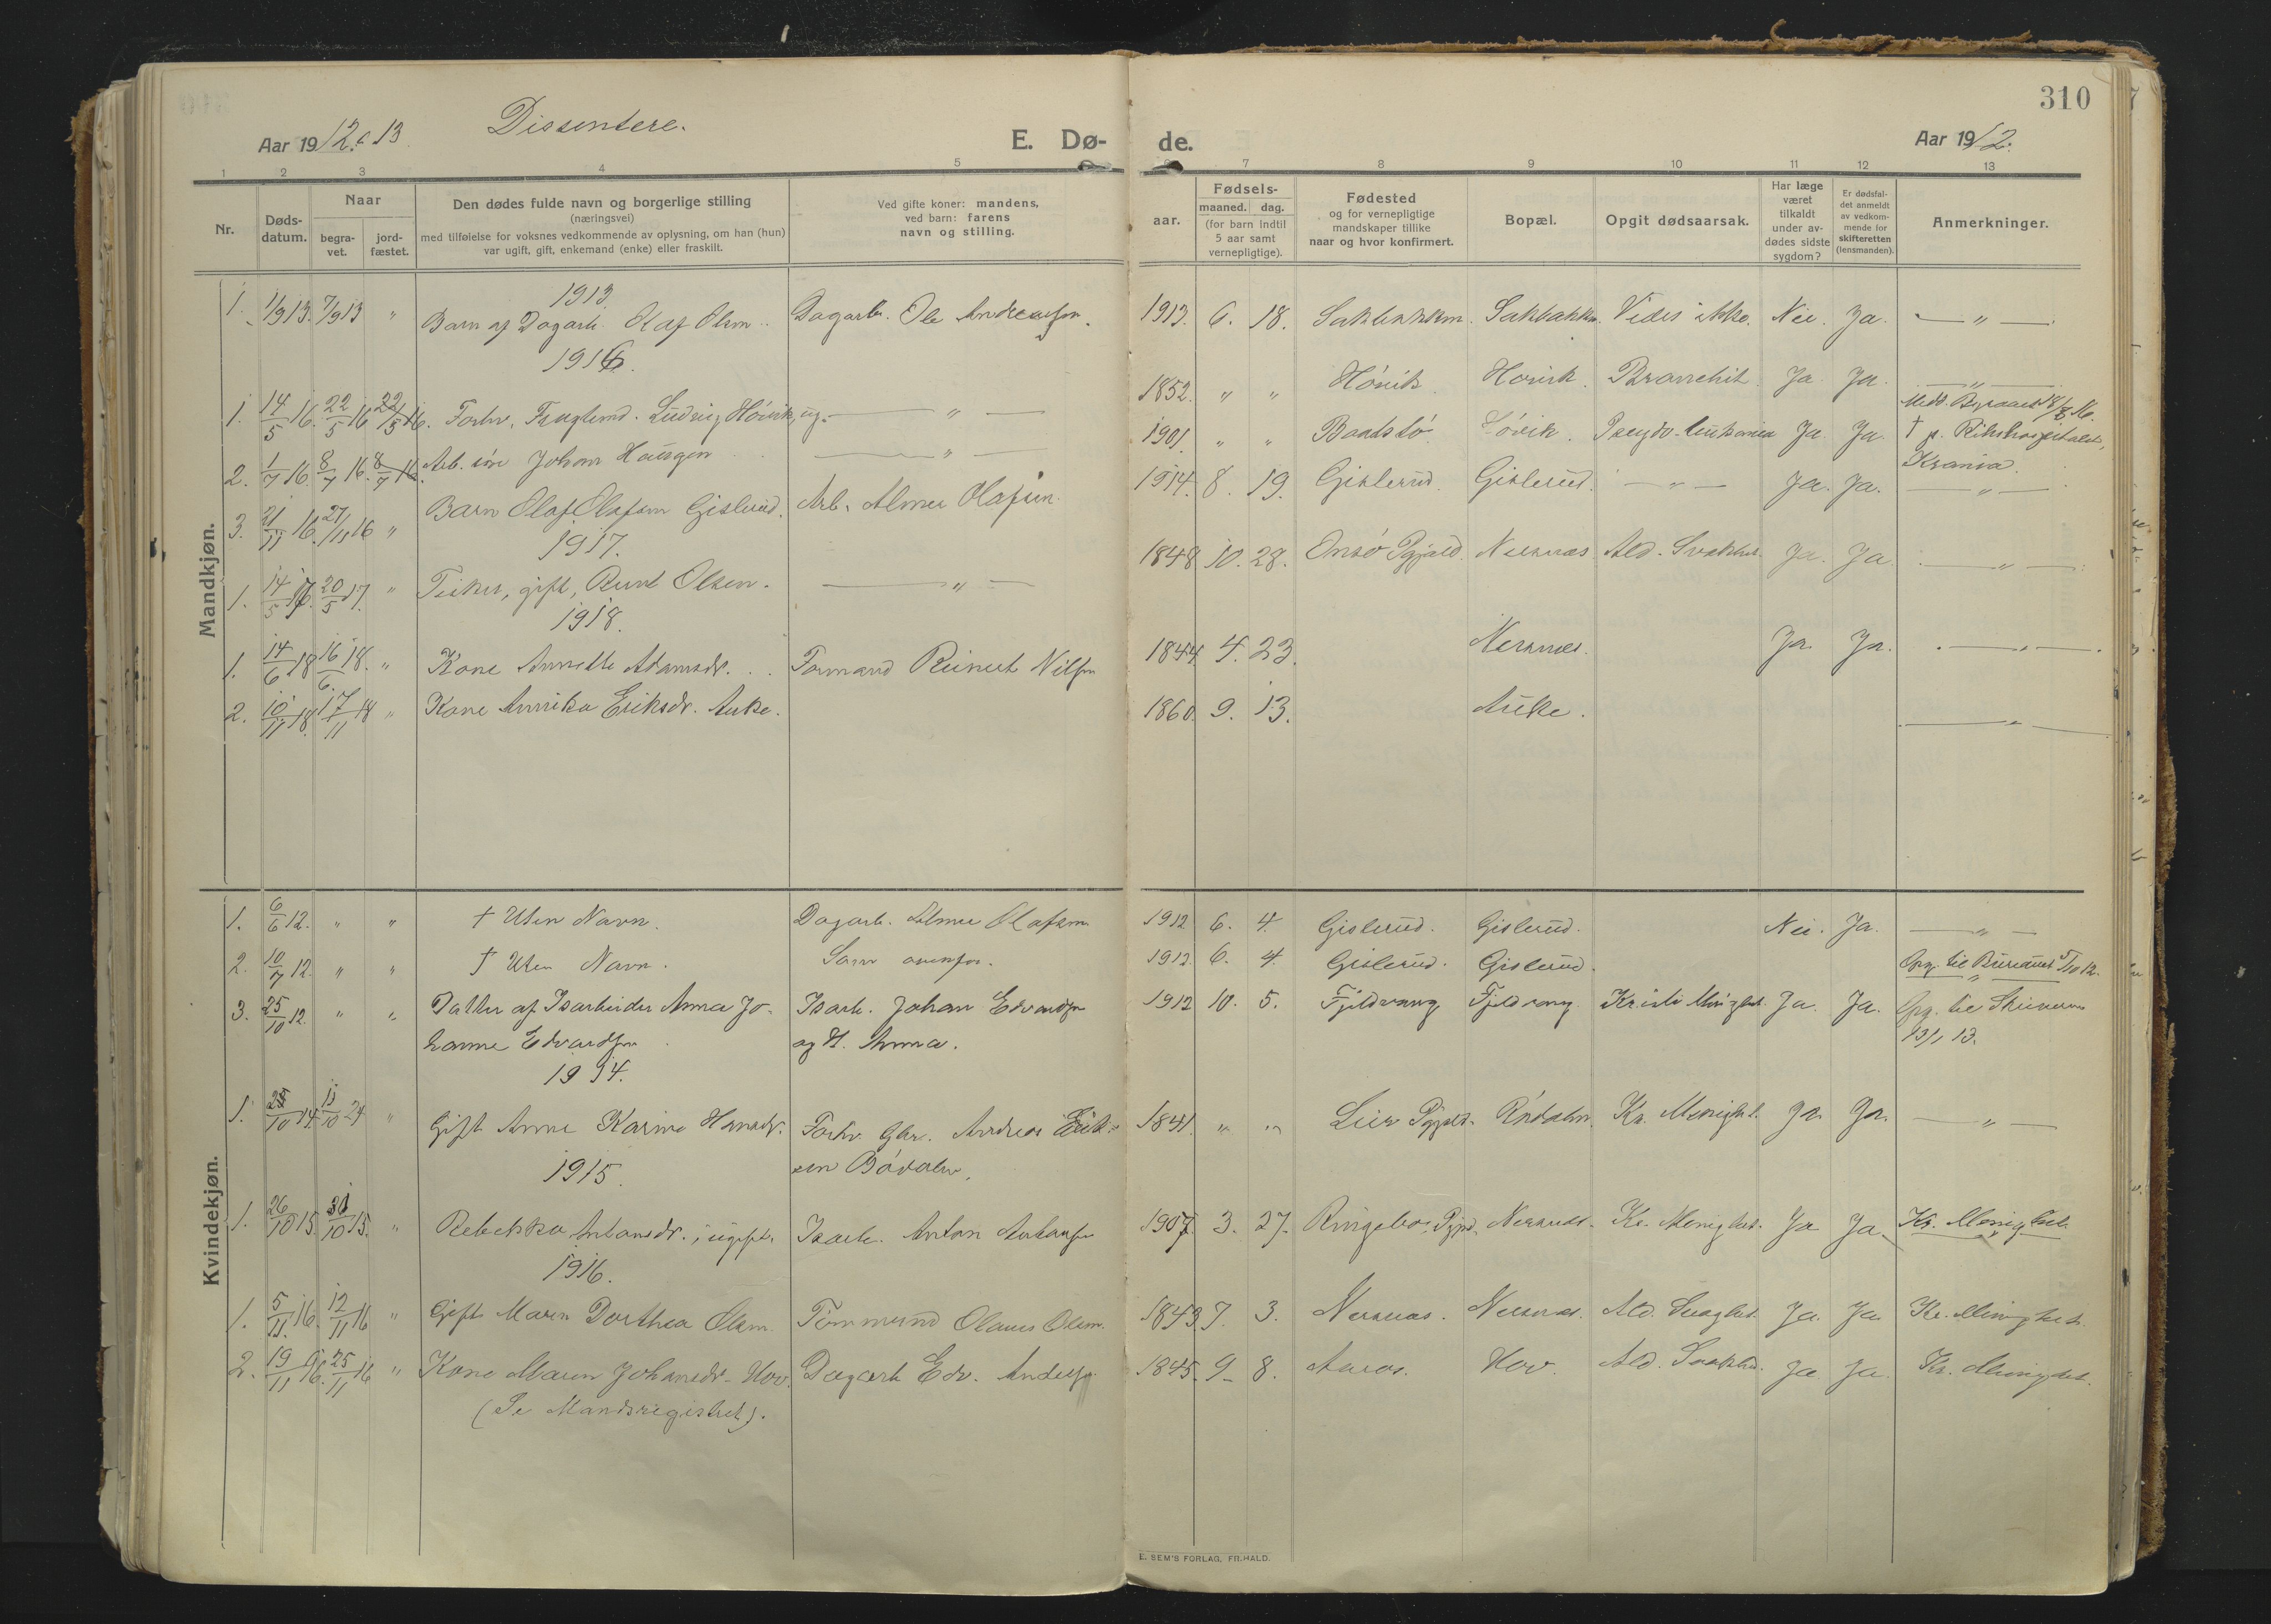 310
Aar 1912 & 13. Dissentere. E. Dø- de. Aar 1912.
1 2 3 4 5 6 7 8 9 10 11 12 13
Nr.
Døds-
datum.
Naar
begra-
vet.
jord-
fæstet.
Den dødes fulde navn og borgerlige stilling
(næringsvei)
med tilføielse for voksnes vedkommende av oplysning, om han (hun)
var ugift, gift, enkemand (enke) eller fraskilt.
Ved gifte koner: mandens,
ved barn: farens
navn og stilling.
aar.
Fødsels-
maaned. dag.
(for barn indtil
5 aar samt
vernepligtige).
Fødested
og for vernepligtige
mandskaper tillike
naar og hvor konfirmert.
Bopæl.
Opgit dødsaarsak.
Har læge
været
tilkaldt
under av-
dødes sidste
sygdom?
Er dødsfal-
det anmeldt
av vedkom-
mende for
skifteretten
(lensmanden).
Anmerkninger.
Mandkjøn.
1913.
1. 1/9 13. 7/9 13 " Barn af Dagarb. Olaf Olsen Dagarb. Ole Andreassen. 1913. 6. 18. Vides ikke. Nei. Ja. — " —
1916.
1. 14/5 16. 22/5 16 22/5 16. Forhv. Ludvig Høvik, ug. — " — 1852. " " Høvik Høvik Ja Ja. — " —
2. 1/7 16. 8/7 16. 8/7 16. Arb. Johan — " — 1901. " " Baadstø Ja. Ja. † p. Rikshospitalet,
Krania.
3. 21/11 16. 27/11 16 " Barn Olaf Olafsen Gislerud. Arb. Almer Olafsen. 1914. 8. 19. Gislerud. Gislerud. — " — Ja. Ja. — " —
1917.
1. 14/5 17. 20/5 17. " Fisker, gift, Olsen. — " — 1848 10. 28. Onsø Pgjæld. Nersnæs Ald. Svakhet. Ja. Ja. — " —
1918.
1. 14/6 18 16/6 18. " Kone Annette Adamsdr. Reinert Nilsen 1844 4. 23. Nersnæs. Ja. Ja. — " —
2. 10/11 18. 17/11 18 " Kone Annika Eriksdr. Auke. 1860. 9. 13. Auke. — " —
Kvindekjøn.
1. 6/6 12. " " † Uten Navn. Dagarb. Almer Olafsen 1912 6. 4. Gislerud. Gislerud. Nei. Ja. — " —
2. 10/7 12. " " † Uten Navn. Som ovenfor. 1912. 6. 4. Gislerud. Gislerud. Opg. til Bureauet 5/10 12.
3. 25/10 12. " " Datter af Isarbeider Anna Jo- Isarb. Johan Edvardsen 1912 10. 5. Fjeldvang Fjeldvang Ja. Ja. Opg. til
hanne Edvardsen og H. Anna. 13/1 13.
1914.
1. 25/10 14. 11/10 24 " Gift Anne Karine Hansdr. Forhv. Gbr. Andreas Erik- 1841. " " Lier Pgjæld. Ja. Ja. — " —
sen
1915.
1. 26/10 15. 31/10 15. " Rebekka Antonsdr., ugift. Isarb. Anton 1907. 3. 27. Ringebo Pgjd. Nersnæs. Ja Ja.
1916.
1. 5/11 16. 12/11 16 " Gift Maren Dorthea Olsen. Tømmermd Olaves Olsen. 1843 7. 3. Nersnæs. Nersnæs. Ald. Svaghet. Ja. Ja
2. 19/11 16. 25/11 16 " Kone Maren Johansdr. Hov. Dagarb Edv. Andersen 1845. 9. 8. Aaros. Hov. Ald. Svakhed. Ja Ja
(Se Mandsregistret).
E. SEM'S FORLAG, FR.HALD.